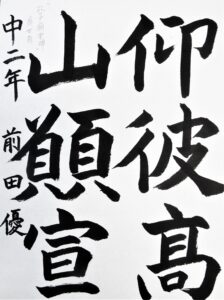 仰彼高
山願宣
中二年 前田優